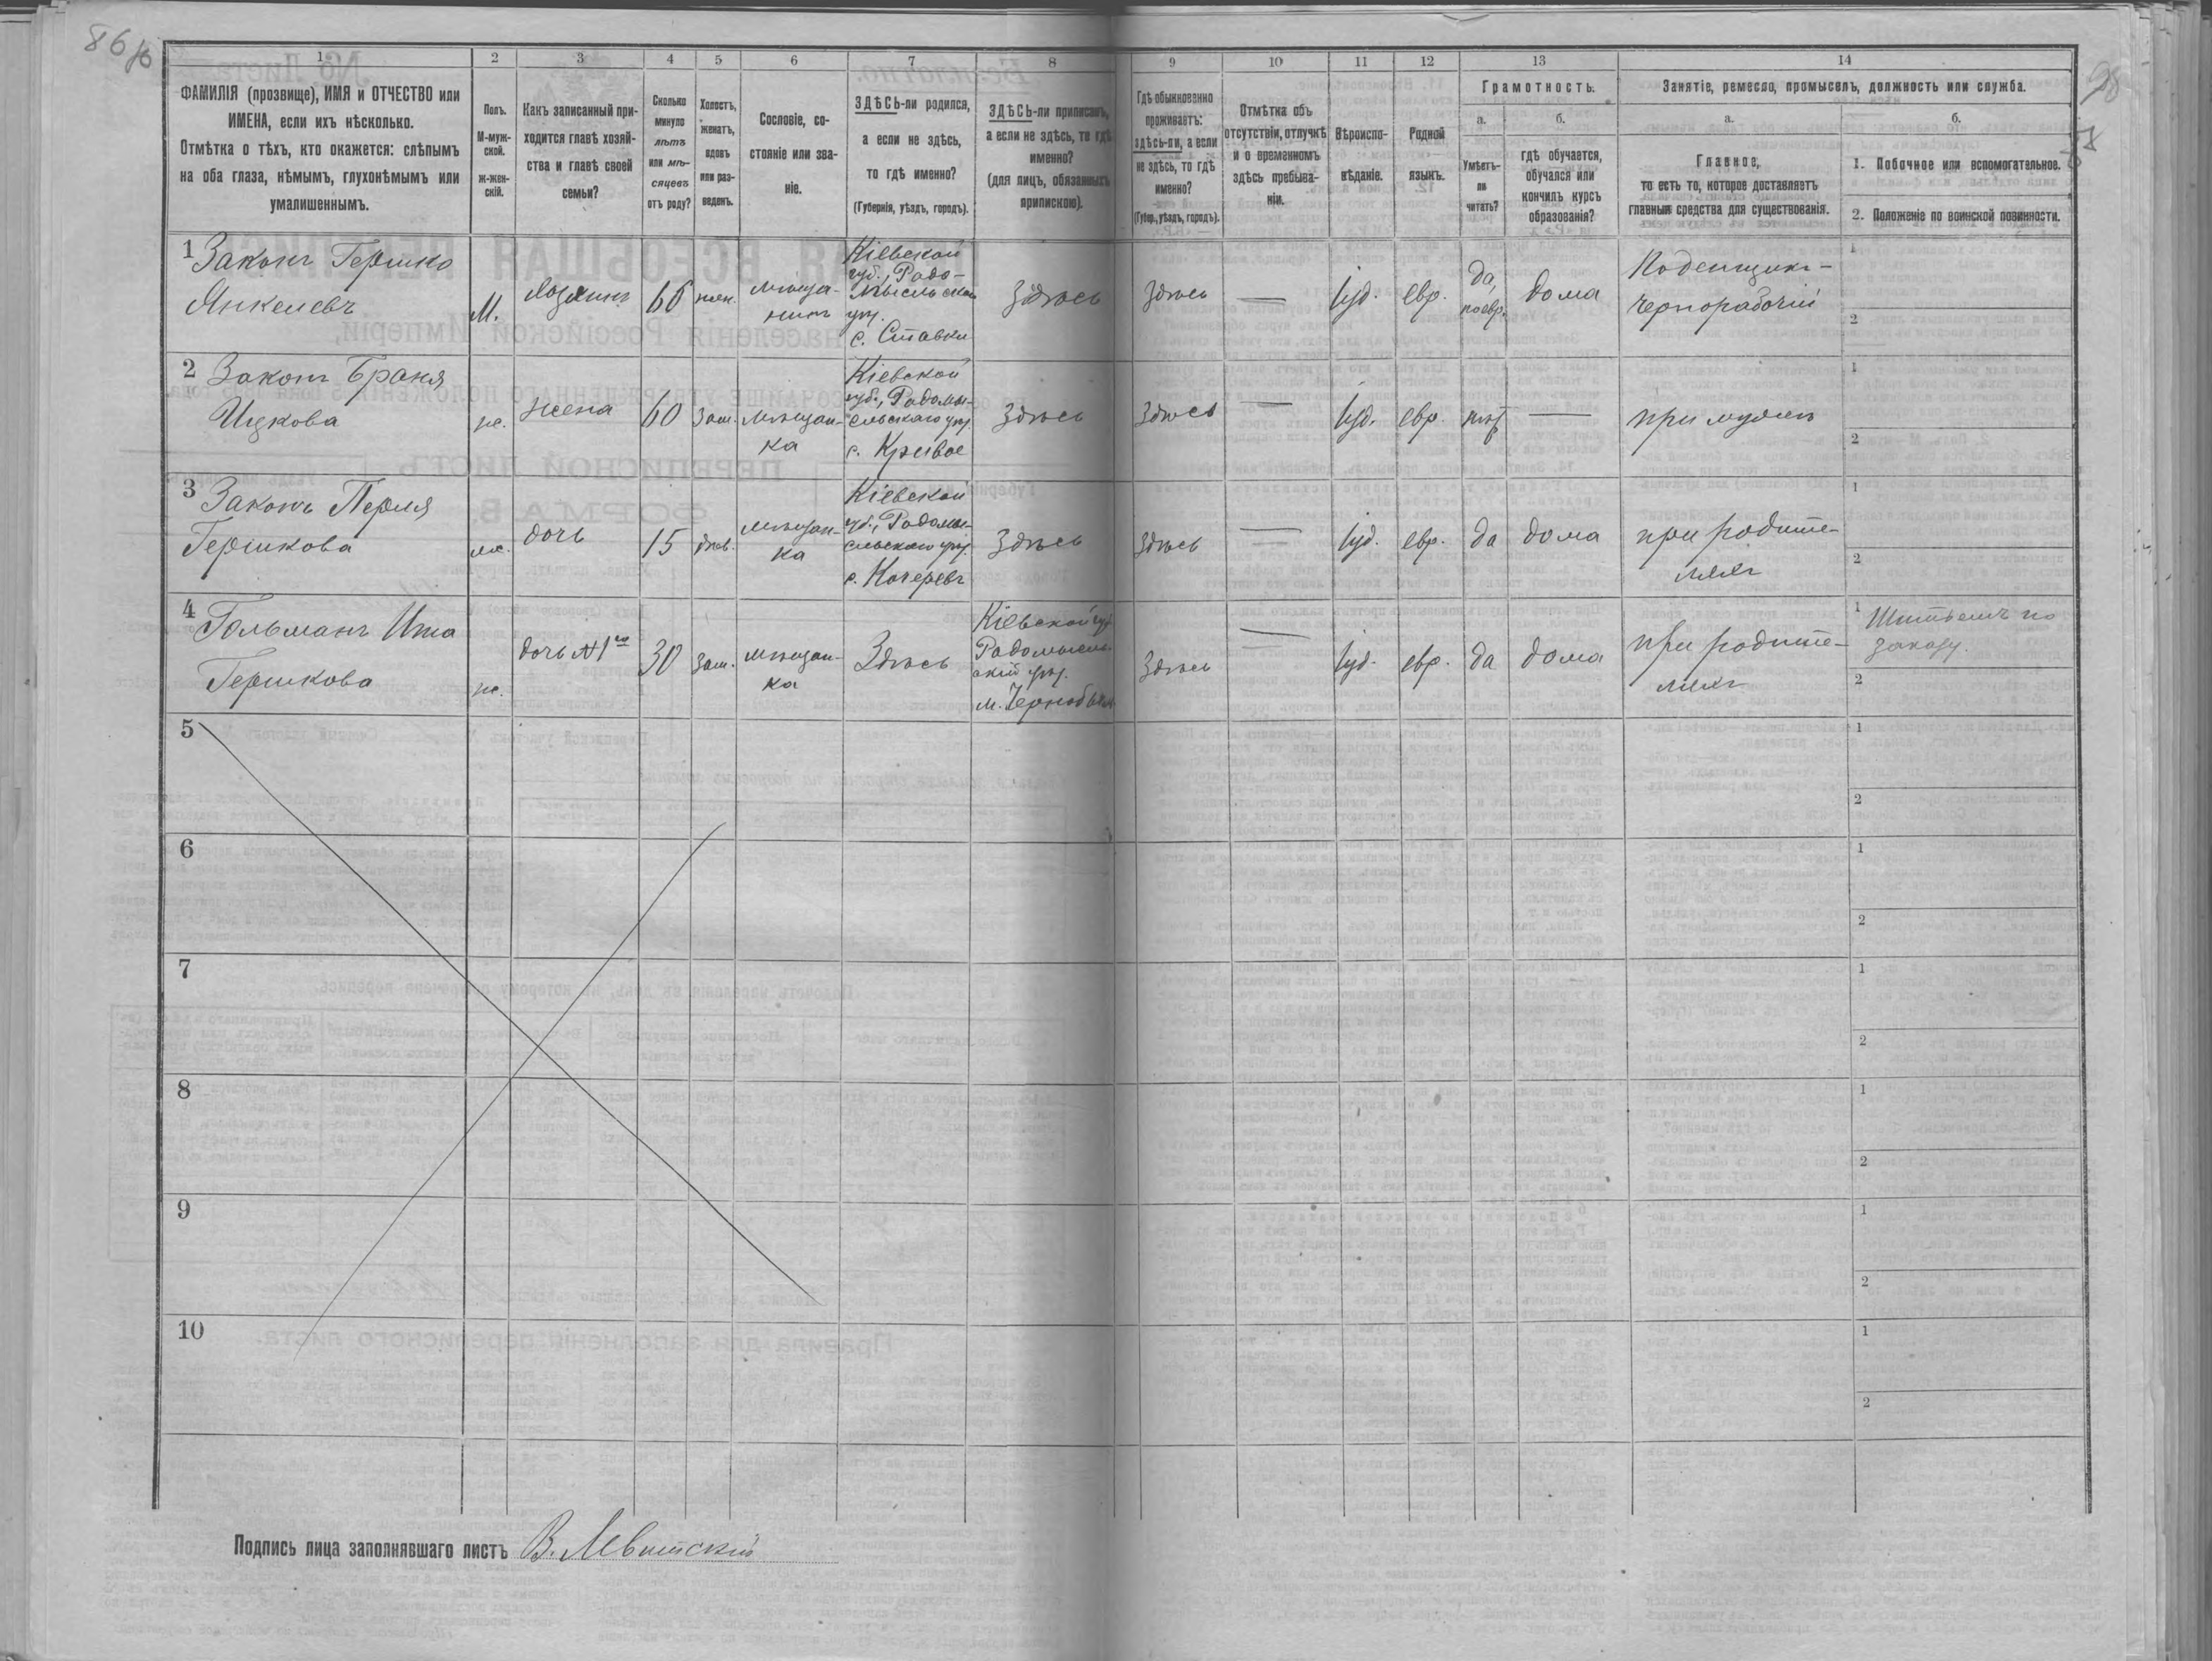 86 об
98
1 2 3 4 5 6 7 8 9 10 11 12 13 14
ФАМИЛІЯ (прозвище), ИМЯ и ОТЧЕСТВО или
ИМЕНА, если ихъ нѣсколько.
Отмѣтка о тѣхъ, кто окажется: слѣпымъ
на оба глаза, нѣмымъ, глухонѣмымъ или
умалишеннымъ.
Полъ.
М-муж-
ской.
Ж-жен-
скій.
Какъ записанный при-
ходится главѣ хозяй-
ства и главѣ своей
семьи?
Сколько
минуло
лѣтъ
или мѣ-
сяцевъ
отъ роду?
Холостъ,
женатъ,
вдовъ
или раз-
веденъ.
Сословіе, со-
стояніе или зва-
ніе.
ЗДѢСЬ-ли родился,
а если не здѣсь,
то гдѣ именно?
(Губернія, уѣздъ, городъ).
ЗДѢСЬ-ли приписанъ,
а если не здѣсь, то гдѣ
именно?
(для лицъ, обязанныхъ
припискою).
Гдѣ обыкновенно
проживаетъ:
здѣсь-ли, а если
не здѣсь, то гдѣ
именно?
(Губер., уѣздъ, городъ).
Отмѣтка объ
отсутствіи, отлучкѣ
и о временномъ
здѣсь пребыва-
ніи.
Вѣроиспо-
вѣданіе.
Родной
языкъ.
Грамотность.
а.
Умѣетъ-
ли
читать?
б.
гдѣ обучается,
обучался или
кончилъ курсъ
образованія?
Занятіе, ремесло, промыселъ, должность или служба.
а.
Главное,
то есть то, которое доставляетъ
главныя средства для существованія.
б.
1. Побочное или вспомогательное.
2. Положеніе по воинской повинности.
1 Законъ Гершко
Янкелевъ
М.
хозяинъ
66
жен.
мѣща-
нинъ
Кіевской
губ., Радо-
мысльскаго
уѣз.
с. Ставки
Здѣсь
Здѣсь
—
Іуд.
евр.
да,
по евр.
дома
Поденщикъ-
чернорабочій
1
2
2 Законъ Браня
Ицкова
ж.
жена
60
зам.
мѣщан-
ка
Кіевской
губ., Радомы-
сльскаго уѣз.
с. Кривое
Здѣсь
Здѣсь
—
Іуд.
евр.
нѣт
—
при мужѣ
1
2
3 Законъ Перля
Гершкова
ж.
дочь
15
дѣв.
мѣщан-
ка
Кіевской
губ., Радомы-
сльскаго уѣз.
с. Кочеревъ
Здѣсь
Здѣсь
—
Іуд.
евр.
да
дома
при родите-
ляхъ
1
2
4 Гольманъ Ита
Гершкова
ж.
дочь №1го
30
зам.
мѣщан-
ка
Здѣсь
Кіевской губ
Радомысль-
скій уѣз.
м. Чернобыль
Здѣсь
—
Іуд.
евр.
да
дома
при родите-
ляхъ
1 Шитьемъ по
заказу.
2
5
1
2
6
1
2
7
1
2
8
1
2
9
1
2
10
1
2
Подпись лица заполнявшаго листъ В. Левитскій